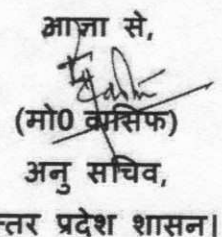 आज्ञा से,
(मो0 वासिफ)
अनु सचिव,
त्तर प्रदेश शासन।